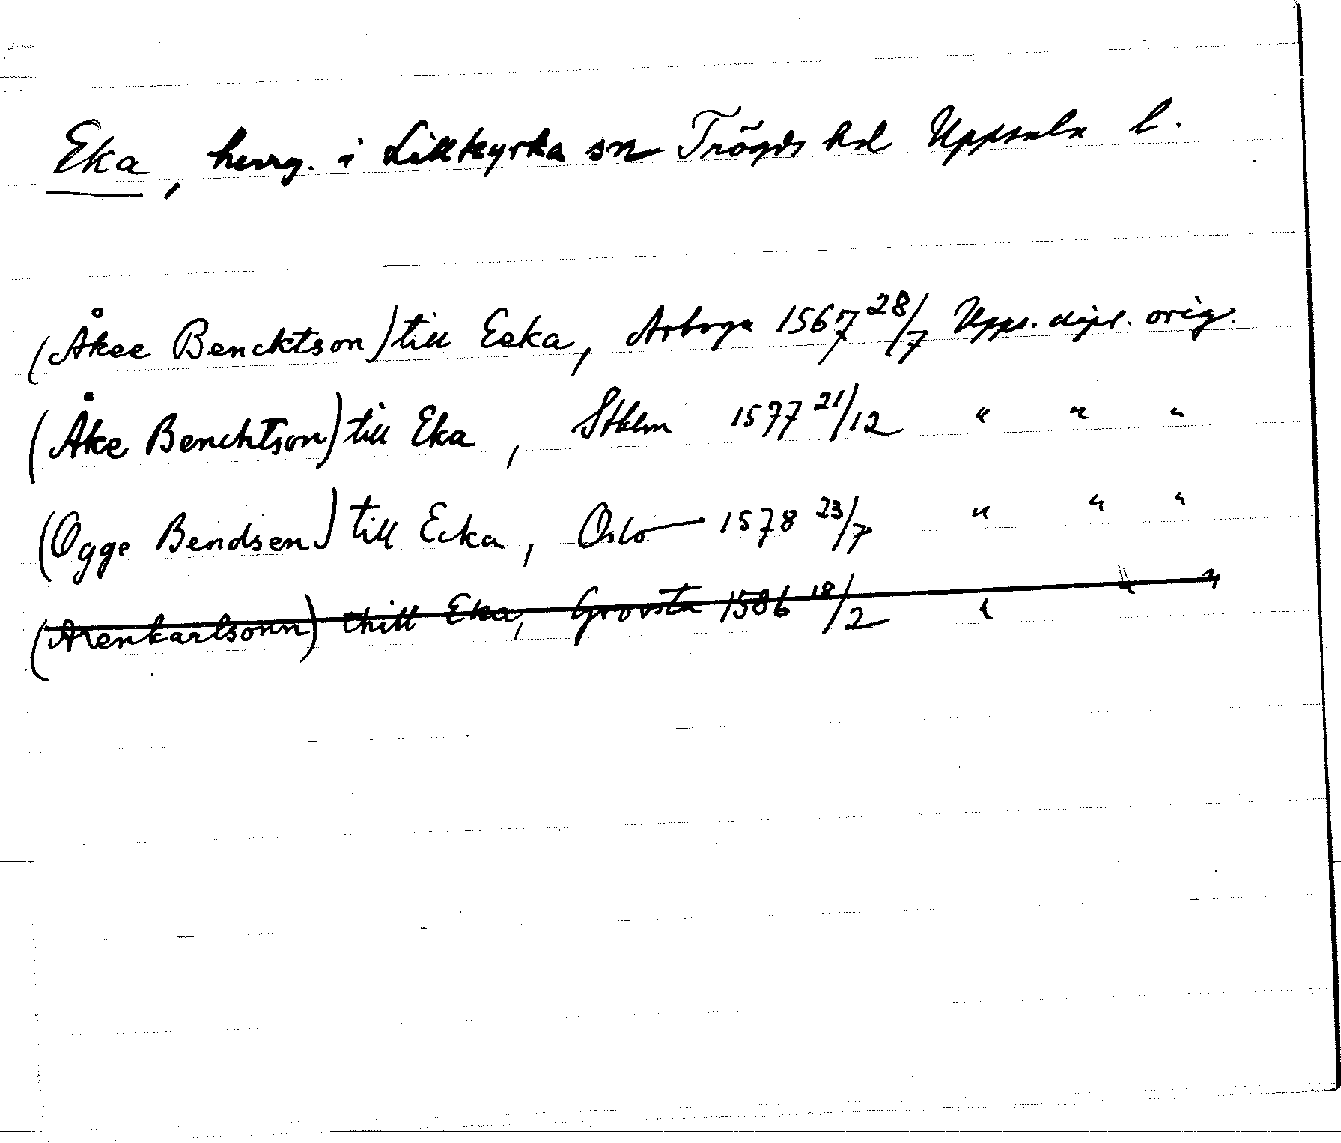 Eka, herrg. i Lillkyrka sn Trögds hd Uppsala l.
(Åkee Bencktson) till Eeka, Arboga 1567 28/7 Upps. dipl. orig.
(Åke Benchtson) till Eka, Sthlm 1577 21/12 " " "
(Ogge Bendsen) till Ecka, Oslo 1578 23/7 " " "
(Arenkarlsonn) thill Eka, Grovsta 1586 18/2 " " "